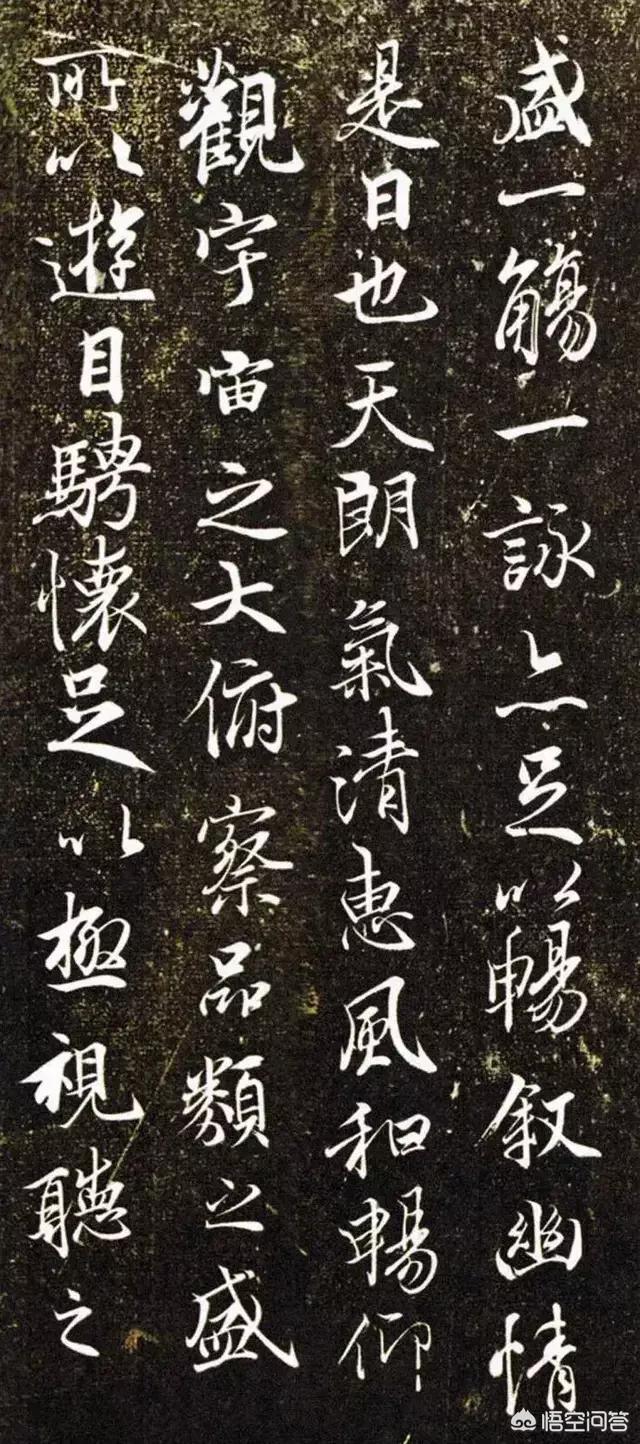 盛一觴一詠亦足以暢叙幽情
是日也天朗氣清惠風和暢仰
觀宇宙之大俯察品類之盛
所以遊目騁懷足以極視聽之
悟空问答